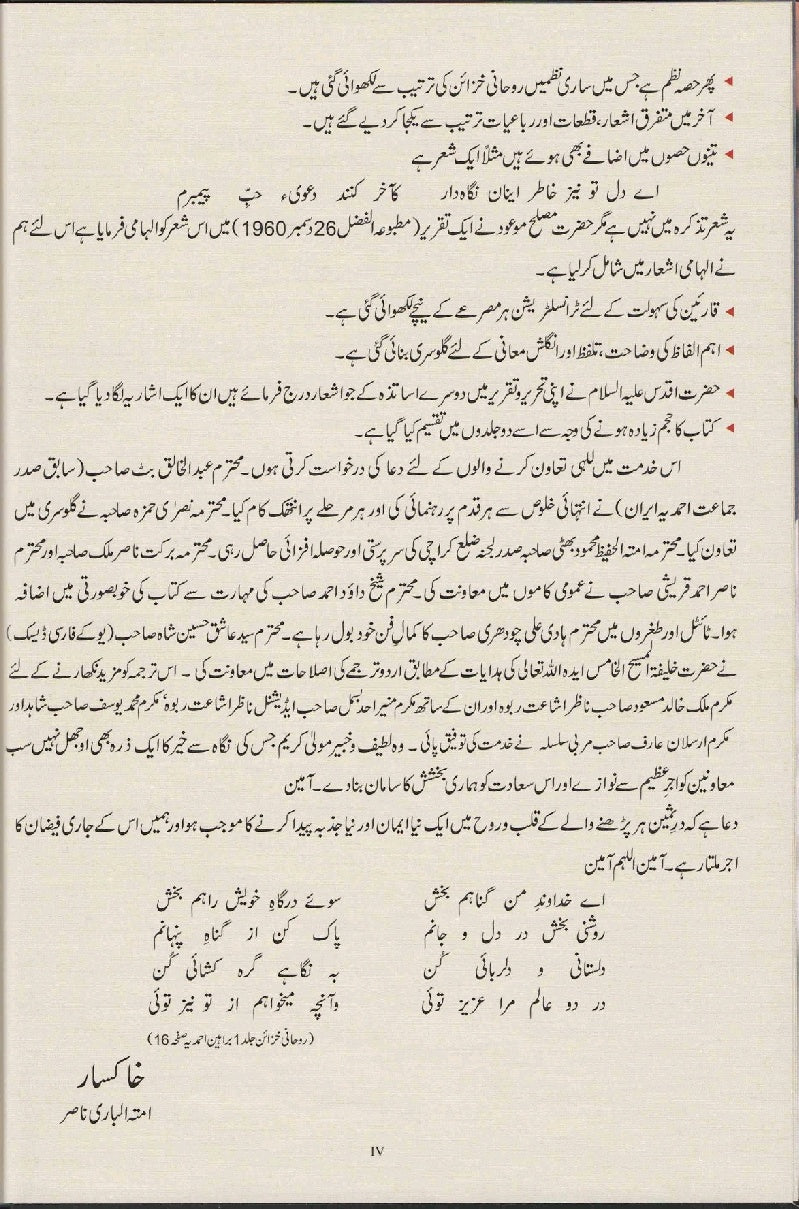 ◄ پھر حصہ نظم ہے جس میں ساری نظمیں روحانی خزائن کی ترتیب سے لکھوائی گئی ہیں۔
◄ آخر میں متفرق اشعار، قطعات اور رباعیات ترتیب سے یکجا کر دیے گئے ہیں۔
◄ تینوں حصوں میں اضافے بھی ہوئے ہیں مثلاً ایک شعر ہے
اے دل تو نیز خاطر اینان نگاہ دار کآخر کنند دعویء حبِّ پیمبرم
یہ شعر تذکرہ میں نہیں ہے مگر حضرت مصلح موعود نے ایک تقریر (مطبوعہ الفضل 26 دسمبر 1960) میں اس شعر کو الہامی فرمایا ہے اس لئے ہم
نے الہامی اشعار میں شامل کر لیا ہے۔
◄ قارئین کی سہولت کے لئے ٹرانسلٹریشن ہر مصرعے کے نیچے لکھوائی گئی ہے۔
◄ اہم الفاظ کی وضاحت، تلفظ اور انگلش معانی کے لئے گلوسری بنائی گئی ہے۔
◄ حضرت اقدس علیہ السلام نے اپنی تحریر و تقریر میں دوسرے اساتذہ کے جو اشعار درج فرمائے ہیں ان کا ایک اشاریہ لگا دیا گیا ہے۔
◄ کتاب کا حجم زیادہ ہونے کی وجہ سے اسے دو جلدوں میں تقسیم کیا گیا ہے۔
اس خدمت میں للہی تعاون کرنے والوں کے لئے دعا کی درخواست کرتی ہوں۔ محترم عبدالخالق بٹ صاحب (سابق صدر
جماعت احمدیہ ایران) نے انتہائی خلوص سے ہر قدم پر رہنمائی کی اور ہر مرحلے پر انتھک کام کیا۔ محترمہ نصرٰی حمزہ صاحبہ نے گلوسری میں
تعاون کیا۔ محترمہ امتہ الحفیظ محمود بھٹی صاحبہ صدر لجنہ ضلع کراچی کی سرپرستی اور حوصلہ افزائی حاصل رہی۔ محترمہ برکت ناصر ملک صاحبہ اور محترم
ناصر احمد قریشی صاحب نے عمومی کاموں میں معاونت کی۔ محترم شیخ داؤد احمد صاحب کی مہارت سے کتاب کی خوبصورتی میں اضافہ
ہوا۔ ٹائٹل اور طغروں میں محترم ہادی علی چودھری صاحب کا کمالِ فن خود بول رہا ہے۔ محترم سید عاشق حسین شاہ صاحب (یو کے فارسی ڈیسک)
نے حضرت خلیفۃ المسیح الخامس ایدہ اللہ تعالیٰ کی ہدایات کے مطابق اردو ترجمے کی اصلاحات میں معاونت کی۔ اس ترجمہ کو مزید نکھارنے کے لئے
مکرم ملک خالد مسعود صاحب ناظر اشاعت ربوہ اور ان کے ساتھ مکرم منیر احمد بسمل صاحب ایڈیشنل ناظر اشاعت ربوہ، مکرم محمد یوسف صاحب شاہد اور
مکرم ارسلان عارف صاحب مربی سلسلہ نے خدمت کی توفیق پائی۔ وہ لطیف و خبیر مولیٰ کریم جس کی نگاہ سے خیر کا ایک ذرہ بھی اوجھل نہیں سب
معاونین کو اجرِ عظیم سے نوازے اور اس سعادت کو ہماری بخشش کا سامان بنا دے۔ آمین
دعا ہے کہ درثمین ہر پڑھنے والے کے قلب و روح میں ایک نیا ایمان اور نیا جذبہ پیدا کرنے کا موجب ہو اور ہمیں اس کے جاری فیضان کا
اجر ملتا رہے۔ آمین اللہم آمین
اے خداوندِ من گناہم بخش سوئے درگاہِ خویش راہم بخش
روشنی بخش در دل و جانم پاک کن از گناہِ پنہانم
دلستانی و دلربائی کُن بہ نگاہے گرہ کشائی کُن
در دو عالم مرا عزیز توئی وآنچہ میخواہم از تو نیز توئی
(روحانی خزائن جلد 1 براہین احمدیہ صفحہ 16)
خاکسار
امتہ الباری ناصر
IV